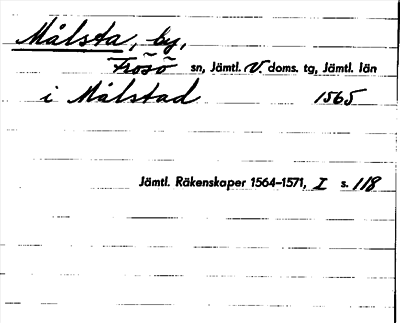 Målsta, by,
Frösö sn, Jämtl. V. doms. tg, Jämtl. län
i Målstad 1565
Jämtl. Räkenskaper 1564–1571, I s. 118